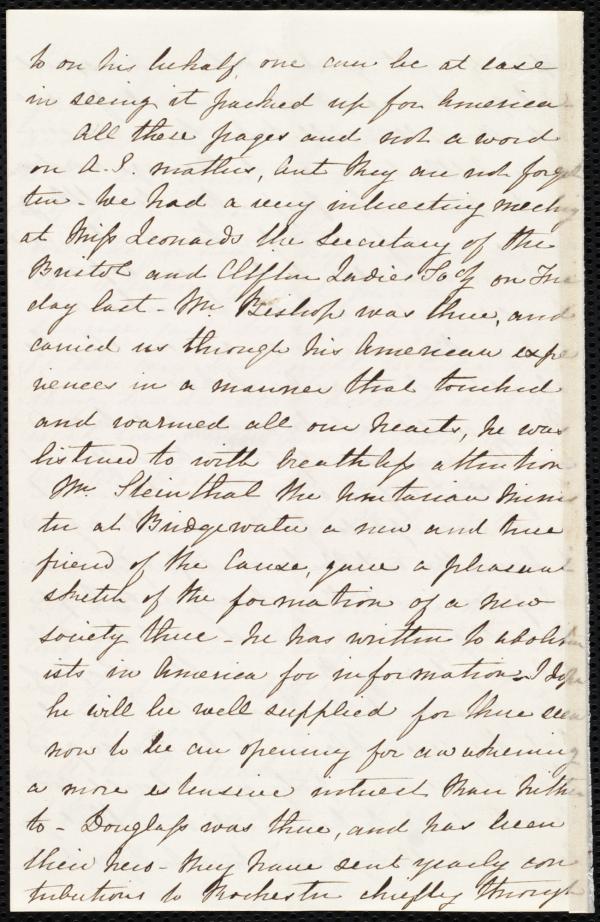 to on his behalf, one can be at ease
in seeing it packed up for America
All these pages and not a word
on A.S. matters, but they are not forgot
ten - We had a very interesting meeting
at Miss Leonards the Secretary of the
Bristol and Clifton Ladies Socy on Fri
day last - Mr Bishop was there, and
carried us through his American expe
riences in a manner that touched
and warmed all our hearts, he was
listened to with breathless attention
Mr. Steinthal the Unitarian Minis
ter at Bridgewater a new and true
friend of the Cause, gave a pleasant
sketch of the formation of a new
society there - he has written to abolition
ists in America for information - I hope
he will be well supplied for there seems
now to be an opening for awakening
a more extensive interest than hither
to - Douglass was there, and has been
their hero - they have sent yearly con
tributions to Rochester chiefly through